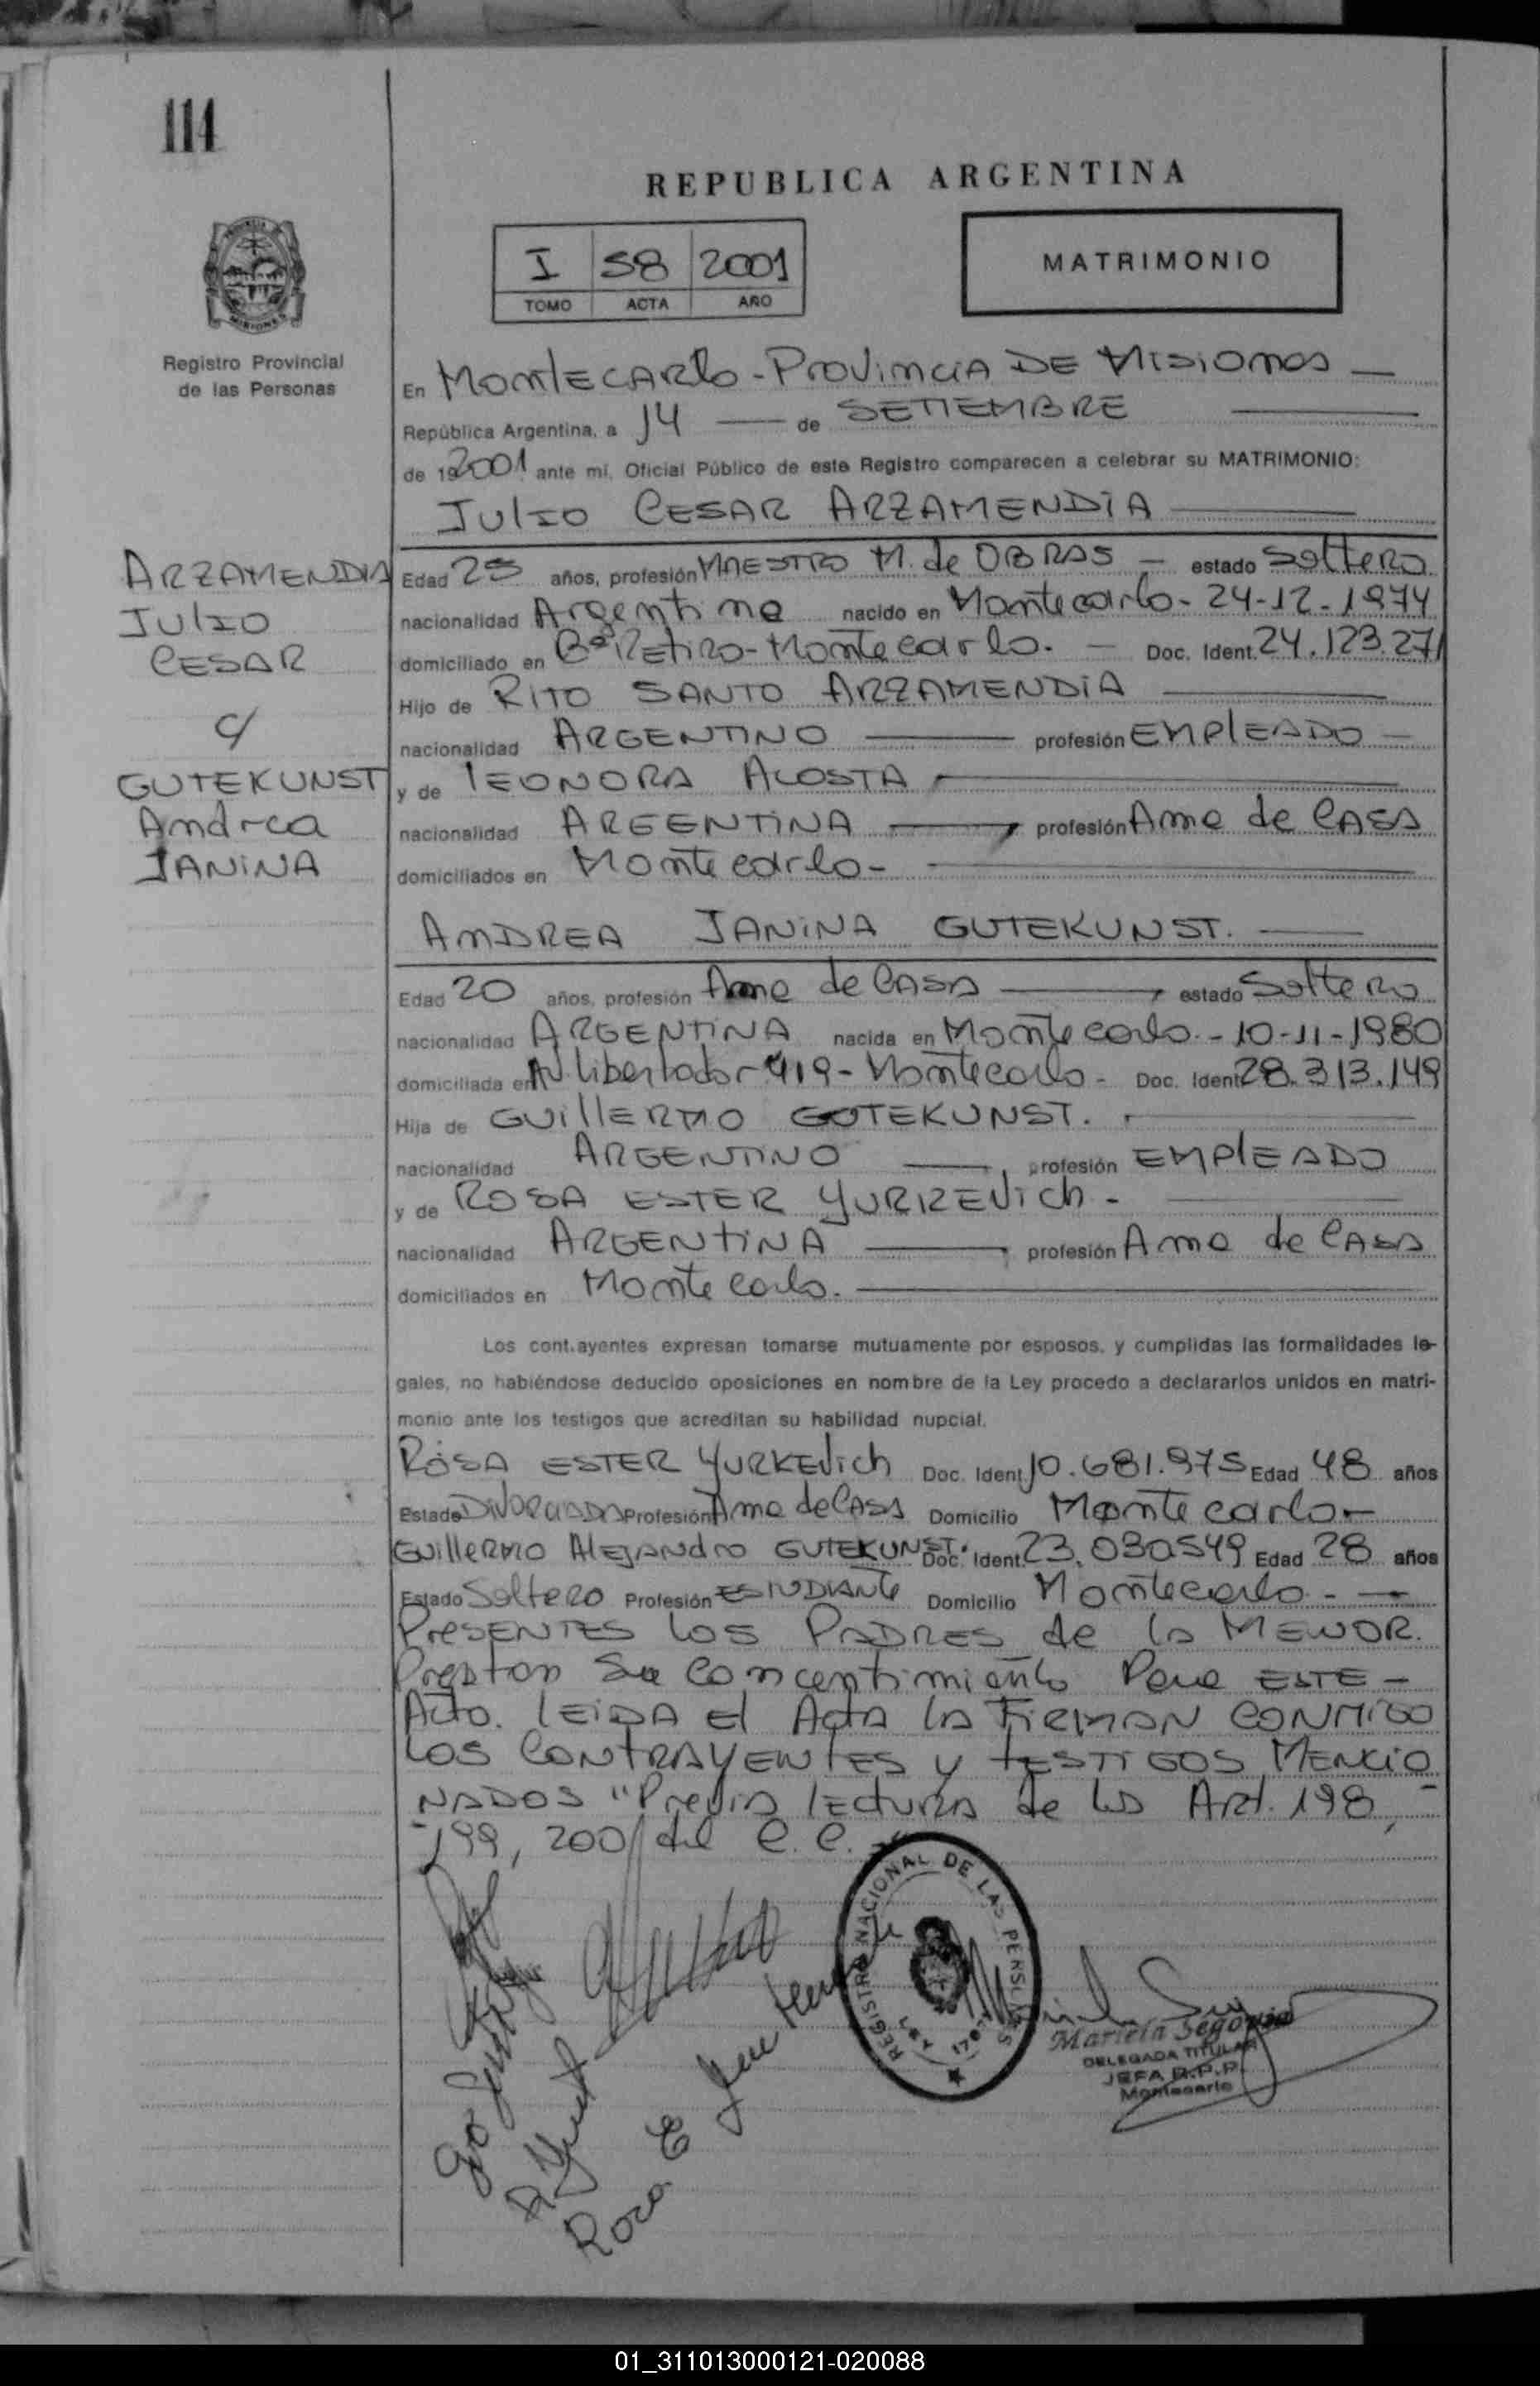 111
REPUBLICA ARGENTINA
I 58 2001
TOMO ACTA AÑO
MATRIMONIO
PROVINCIA DE
MISIONES
Registro Provincial
de las Personas
En MONTECARLO - PROVINCIA DE MISIONES
República Argentina, a 14 de SETIEMBRE
de 192001 ante mi, Oficial Público de este Registro comparecen a celebrar su MATRIMONIO:
JULIO CESAR ARZAMENDIA
ARZAMENDIA
JULIO
CESAR
c/
GUTEKUNST
Andrea
JANINA
Edad 25 años, profesión MAESTRO M. de OBRAS - estado Soltero
nacionalidad Argentina nacido en Montecarlo - 24-12-1974
domiciliado en Bº Retiro - Montecarlo. - Doc. Ident. 24.123.271
Hijo de RITO SANTO ARZAMENDIA
nacionalidad ARGENTINO profesión EMPLEADO
y de LEONORA ACOSTA
nacionalidad ARGENTINA profesión Ama de CASA
domiciliados en Montecarlo -
ANDREA JANINA GUTEKUNST.
Edad 20 años, profesión Ama de CASA estado Soltera
nacionalidad ARGENTINA nacida en Montecarlo - 10-11-1980
domiciliada en Av Libertador 419 - Montecarlo - Doc. Ident 28.313.149
Hija de GUILLERMO GUTEKUNST.
nacionalidad ARGENTINO profesión EMPLEADO
y de ROSA ESTER YURKEVICH -
nacionalidad ARGENTINA profesión Ama de CASA
domiciliados en Montecarlo.
Los contrayentes expresan tomarse mutuamente por esposos, y cumplidas las formalidades le-
gales, no habiéndose deducido oposiciones en nombre de la Ley procedo a declararlos unidos en matri-
monio ante los testigos que acreditan su habilidad nupcial.
ROSA ESTER YURKEVICH Doc. Ident 10.681.975 Edad 48 años
Estado DIVORCIADA Profesión Ama de CASA Domicilio Montecarlo -
GUILLERMO ALEJANDRO GUTEKUNST. Doc. Ident. 23.030549 Edad 28 años
Estado Soltero Profesión ESTUDIANTE Domicilio Montecarlo -
PRESENTES LOS PADRES de la MENOR.
Prestan Su Concentimiento Para ESTE -
Acto. LEIDA El Acta la FIRMAN CONMIGO
LOS CONTRAYENTES y TESTIGOS MENCIO
NADOS "Previa lectura de los Art. 198,
199, 200/ del C.C.
REGISTRO NACIONAL DE LAS PERSONAS
Rosa E
Mariela Segovia
DELEGADA TITULAR
JEFA R.P.P.
Montecarlo
01_311013000121-020088